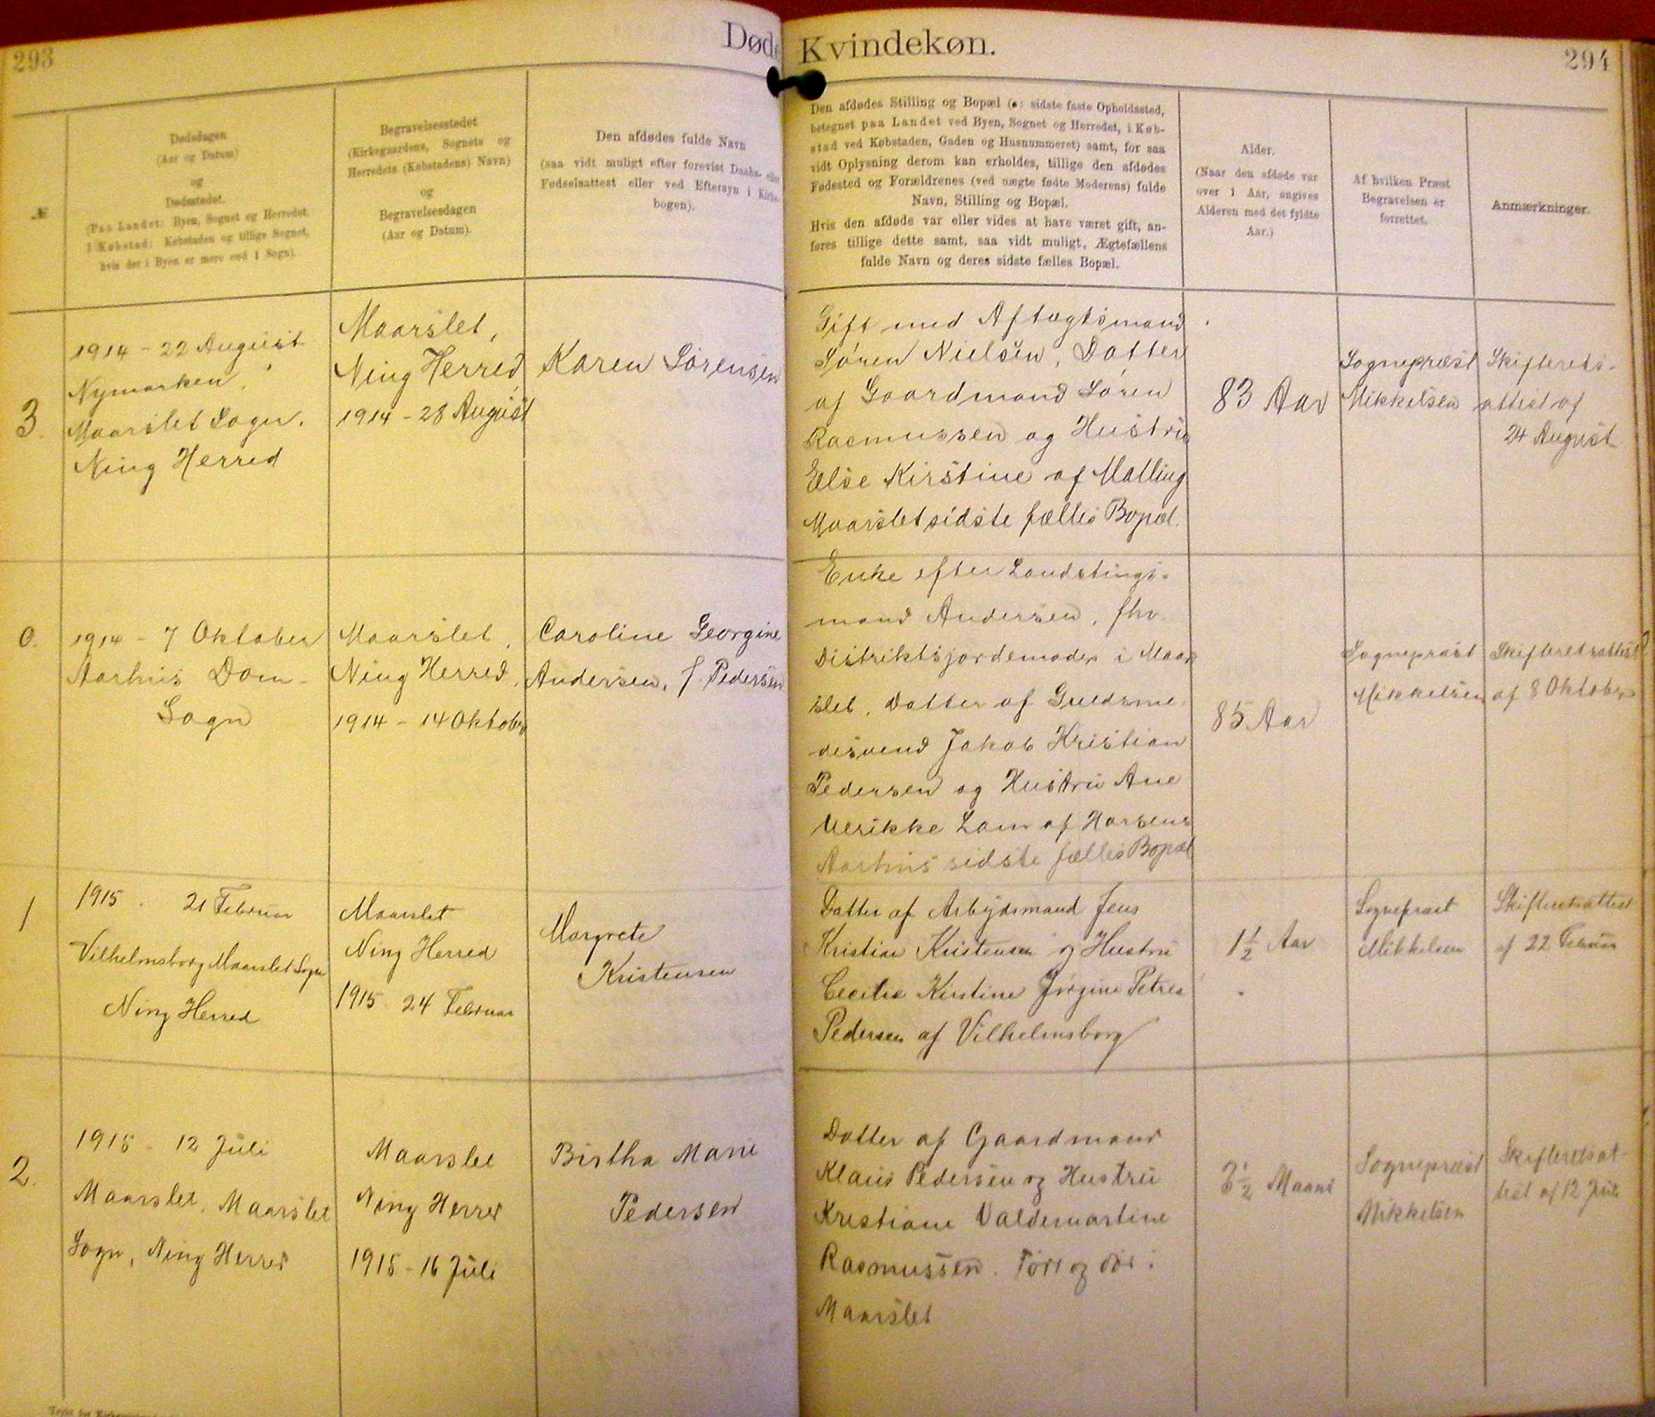 293
Døde
Kvindekøn.
294
№
Dødsdagen
(Aar og Datum)
og
Dødsstedet.
(Paa Landet: Byen, Sognet og Herredet.
I Købstad: Købstaden og tillige Sognet,
hvis der i Byen er mere end 1 Sogn).
Begravelsesstedet
(Kirkegaardens, Sognets og
Herredets (Købstadens) Navn)
og
Begravelsesdagen
(Aar og Datum).
Den afdødes fulde Navn
(saa vidt muligt efter forevist Daabs- eller
Fødselsattest eller ved Eftersyn i Kirke-
bogen).
Den afdødes Stilling og Bopæl (ɔ: sidste faste Opholdssted,
betegnet paa Landet ved Byen, Sognet og Herredet, i Køb-
stad ved Købstaden, Gaden og Husnummeret) samt, for saa
vidt Oplysning derom kan erholdes, tillige den afdødes
Fødested og Forældrenes (ved uægte fødte Moderens) fulde
Navn, Stilling og Bopæl.
Hvis den afdøde var eller vides at have været gift, an-
føres tillige dette samt, saa vidt muligt, Ægtefællens
fulde Navn og deres sidste fælles Bopæl.
Alder.
(Naar den afdøde var
over 1 Aar, angives
Alderen med det fyldte
Aar.)
Af hvilken Præst
Begravelsen er
forrettet.
Anmærkninger.
3.
1914 - 22 August
Nymarken,
Maarslet Sogn.
Ning Herred
Maarslet,
Ning Herred,
1914 - 28 August
Karen Sørensen
Gift med Aftægtsmand
Søren Nielsen, Datter
af Gaardmand Søren
Rasmussen og Hustru
Else Kirstine af Malling
Maarslet sidste fælles Bopæl.
83 Aar
Sognepræst
Mikkelsen
Skifterets-
attest af
24 August
0.
1914 - 7 Oktober
Aarhus Dom-
Sogn
Maarslet,
Ning Herred,
1914 - 14 Oktober
Caroline Georgine
Andersen, f. Pedersen
Enke efter Landstings-
mand Andersen, fhv.
Distriktsjordemoder i Maar
slet, Datter af Guldsme
desvend Jakob Kristian
Pedersen og Hustru Ane
Ulrikke Lam af Horsens
Aarhus sidste fælles Bopæl
85 Aar
Sognepræst
Mikkelsen
Skifteretsattest
af 8 Oktober
1
1915 . 21 Februar
Vilhelmsborg Maarslet Sogn
Ning Herred
Maarslet
Ning Herred
1915 - 24 Februar
Margrete
Kristensen
Datter af Arbejdsmand Jens
Kristian Kristensen og Hustru
Cecilie Kirstine Jørgine Petrea
Pedersen af Vilhelmsborg
1½ Aar
Sognepræst
Mikkelsen
Skifteretsattest
af 22 Februar
2.
1915 - 12 Juli
Maarslet, Maarslet
Sogn, Ning Herred
Maarslet
Ning Herred
1915 - 16 Juli
Birtha Marie
Pedersen
Datter af Gaardmand
Klaus Pedersen og Hustru
Kristiane Valdemartine
Rasmussen. Født og død i
Maarslet
3½ Maaned
Sognepræst
Mikkelsen
Skifteretsat-
test af 12 Juli